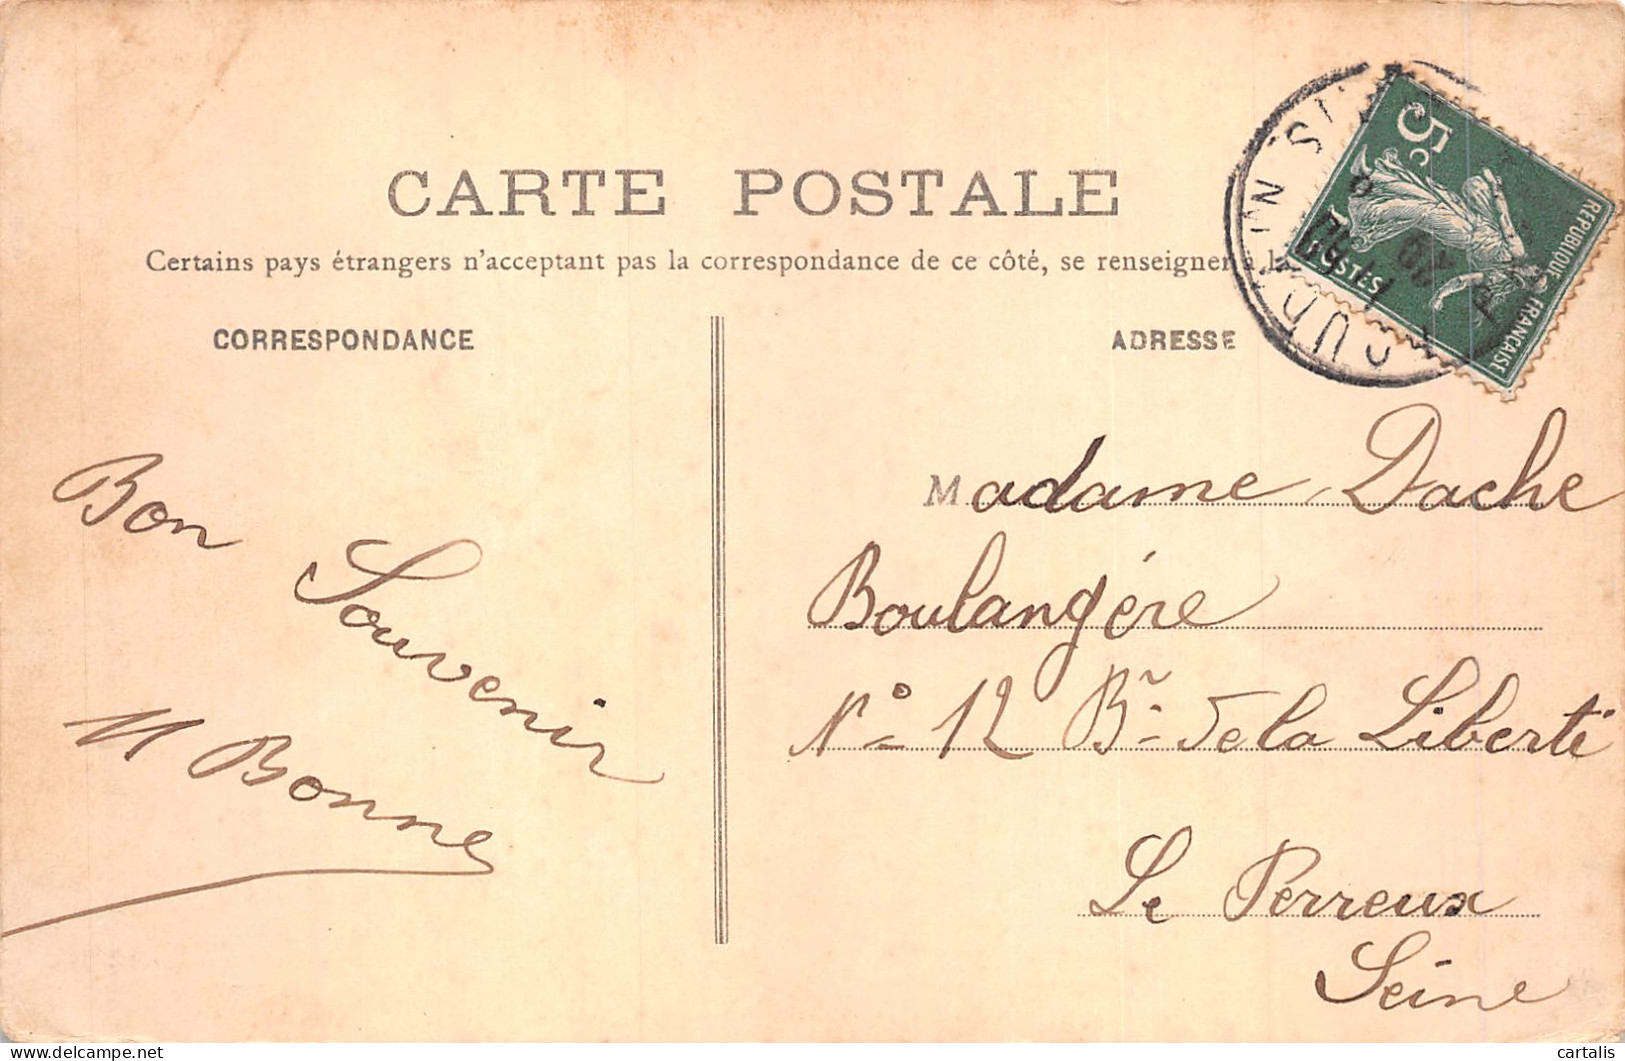 CARTE POSTALE
Certains pays étrangers n'acceptant pas la correspondance de ce côté, se renseigner à la
CORRESPONDANCE
ADRESSE
5c
RÉPUBLIQUE FRANÇAISE
POSTES
Bon
Souvenir
M Bonne
Madame Dache
Boulangére
N° 12 Br de la Liberté
Le Perreux
Seine
delcampe.net
cartalis